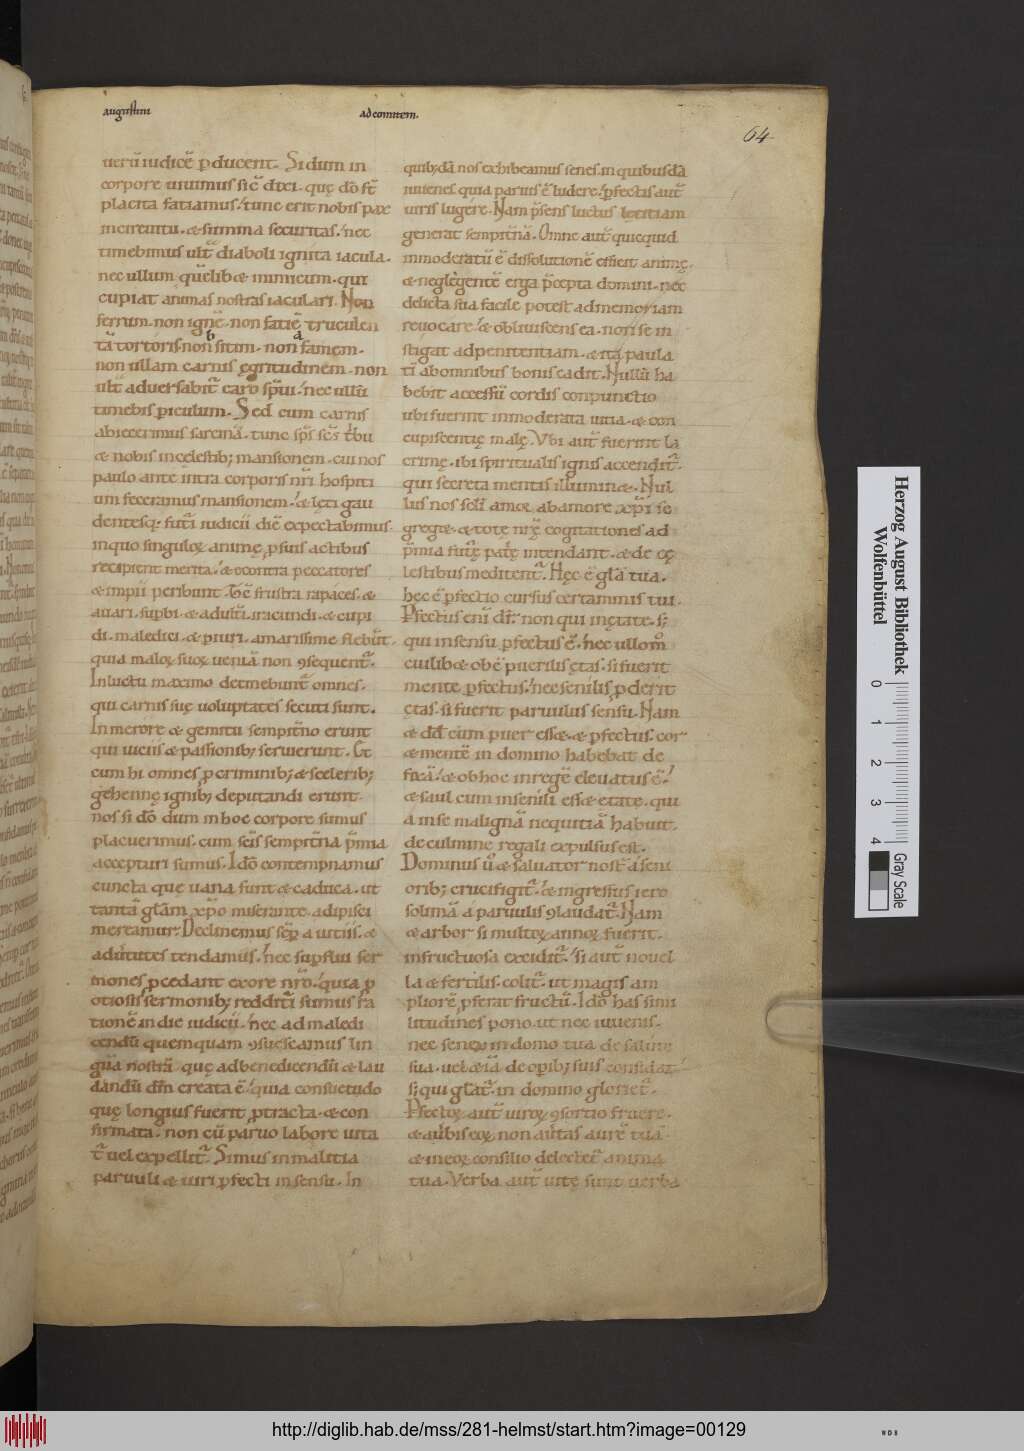 augustini
ad comitem.
64
uerū iudicē ꝑducent. Si dum in
corpore uiuimus sic̄ dixi. quę dō st̄
placita fatiamus. tunc erit nobis pax
in circuitu. & summa securitas. nec
timebimus ult̄ diaboli ignita iacula.
nec ullum quēlib& inimicum. qui
cupiat animas nostras iaculari. Non
ferrum. non ignē. non fatiē truculen
tā tortoris. non sitim. non famem.
non ullam carnis ęgritudinem. non
ult̄ aduersabit᷑ caro sp̄ui. nec ullū
timebis ꝑiculum. Sed cum carnis
abiecerimus sarcinā. tunc sp̄s sc̄s t'bu
& nobis in cęlestib; mansionem. cui nos
paulo ante intra corporis nr̄i hospiti
um feceramus mansionem. & lęti gau
dentesq; fut'i iudicii diē expectabimus.
in quo singuloꝝ animę ꝓ suis actibus
recipient merita. & econtra peccatores
& impii peribunt. Tc̄ frustra rapaces. &
auari. supbi. & adult'i. iracundi. & cupi
di. maledici. & piuri. amarissime flebūt.
quia maloꝝ suoꝝ ueniā non ꝯsequent᷑.
In luctu maximo detinebunt᷑ omnes.
qui carnis suę uoluptates secuti sunt.
In merore & gemitu sempit̄no erunt
qui uiciis & passionib; seruierunt. Et
cum hi omnes ꝓ criminib; & sceleribus;
gehennę ignib; deputandi erunt.
nos si dō dum in hoc corpore sumus
placuerimus. cum sc̄is sempit̄na p̄mia
accepturi sumus. Idō contempnamus
cuncta quę uana sunt & caduca. ut
tantā glām xp̄o miserante. adipisci
mereamur. Declinemus sēp a uitiis. &
ad uirtutes tendamus. nec sup̄flui ser
mones ꝓcedant ex ore nr̄o. quia ꝓ
otiosis sermonib; reddit'i sumus ra
tionē in die iudicii. nec ad maledi
cendū quemquam ꝯsuescamus lin
guā nostrā. quę ad benedicendū & lau
dandū dn̄m creata ē. quia consuetudo
quę longius fuerit ꝓtracta. & con
firmata. non cū paruo labore uita
t᷑ uel expellit᷑. Simus in malitia
paruuli & uiri ꝑfecti in sensu. In
quib;dā nos exhibeamus senes. in quibusdā
iuuenes quia paruis ē ludere. ꝑfectis aut̄
uiris lugere. Nam p̄sens luctus lętitiam
generat sempit̄nā. Omne aut̄ quicquid
immoderatū ē dissolutionē efficit animę.
& neglegentē erga p̄cepta domini. nec
delicta sua facile potest ad memoriam
reuocare. & obliuiscens ea. non se in
stigat ad penitentiam. & ita paula
tī ab omnibus bonis cadit. Nullū ha
bebit accessū cordis conpunctio
ubi fuerint inmoderata uitia. & con
cupiscentię malę. Vbi aut̄ fuerint la
crimę. ibi spiritualis ignis accendit᷑.
qui secreta mentis illumin&. Nul
lus nos scl̄i amoꝝ ab amore xp̄i se
greg&. & totę nr̄ę cogitationes ad
p̄mia fut'ę pat'ę intendant. & de cę
lestibus meditent᷑. Hęc ē glā tua.
hęc ē ꝑfectio cursus certaminis tui.
Ꝑfectus eni dr̄. non qui in ętate. s;
qui in sensu ꝑfectus ē. nec ullo m̊
cuilib& obē puerilis ętas. si fuerit
mente ꝑfectus. nec senilis ꝓderit
ętas. si fuerit paruulus sensu. Nam
& dd̄ cum puer ess&. & ꝑfectus. cor
& mentē in domino habebat de
fixā. & ob hoc in regē eleuatus ē.
& saul cum in senili ess& etate. qui
a in se malignā nequitiā habuit.
de culmine regali expulsus est.
Dominus ū & saluator nost̄ a seni
orib; crucifigit᷑. & ingressus iero
solimā a paruulis ꝯlaudat᷑. Nam
& arbor si multoꝝ annoꝝ fuerit.
infructuosa excidit᷑. si aut̄ nouel
la & fertilis. colit᷑. ut magis am
pliorē ꝓferat fructū. Idō has simi
litudines pono. ut nec iuuenis.
nec senex in domo tua de salute
sua. uel &iā de opib; suis confidat
s; qui glat᷑. in domino gloriet᷑.
Ꝑfectoꝝ aut̄ uiroꝝ ꝯsortio fruere.
& a ubis eoꝝ non autas aurē tuā.
& in eoꝝ consilio delectet᷑ anima
tua. Verba aut̄ uitę sunt uerba
Herzog August Bibliothek
Wolfenbüttel
0 1 2 3 4
Gray Scale
http://diglib.hab.de/mss/281-helmst/start.htm?image=00129